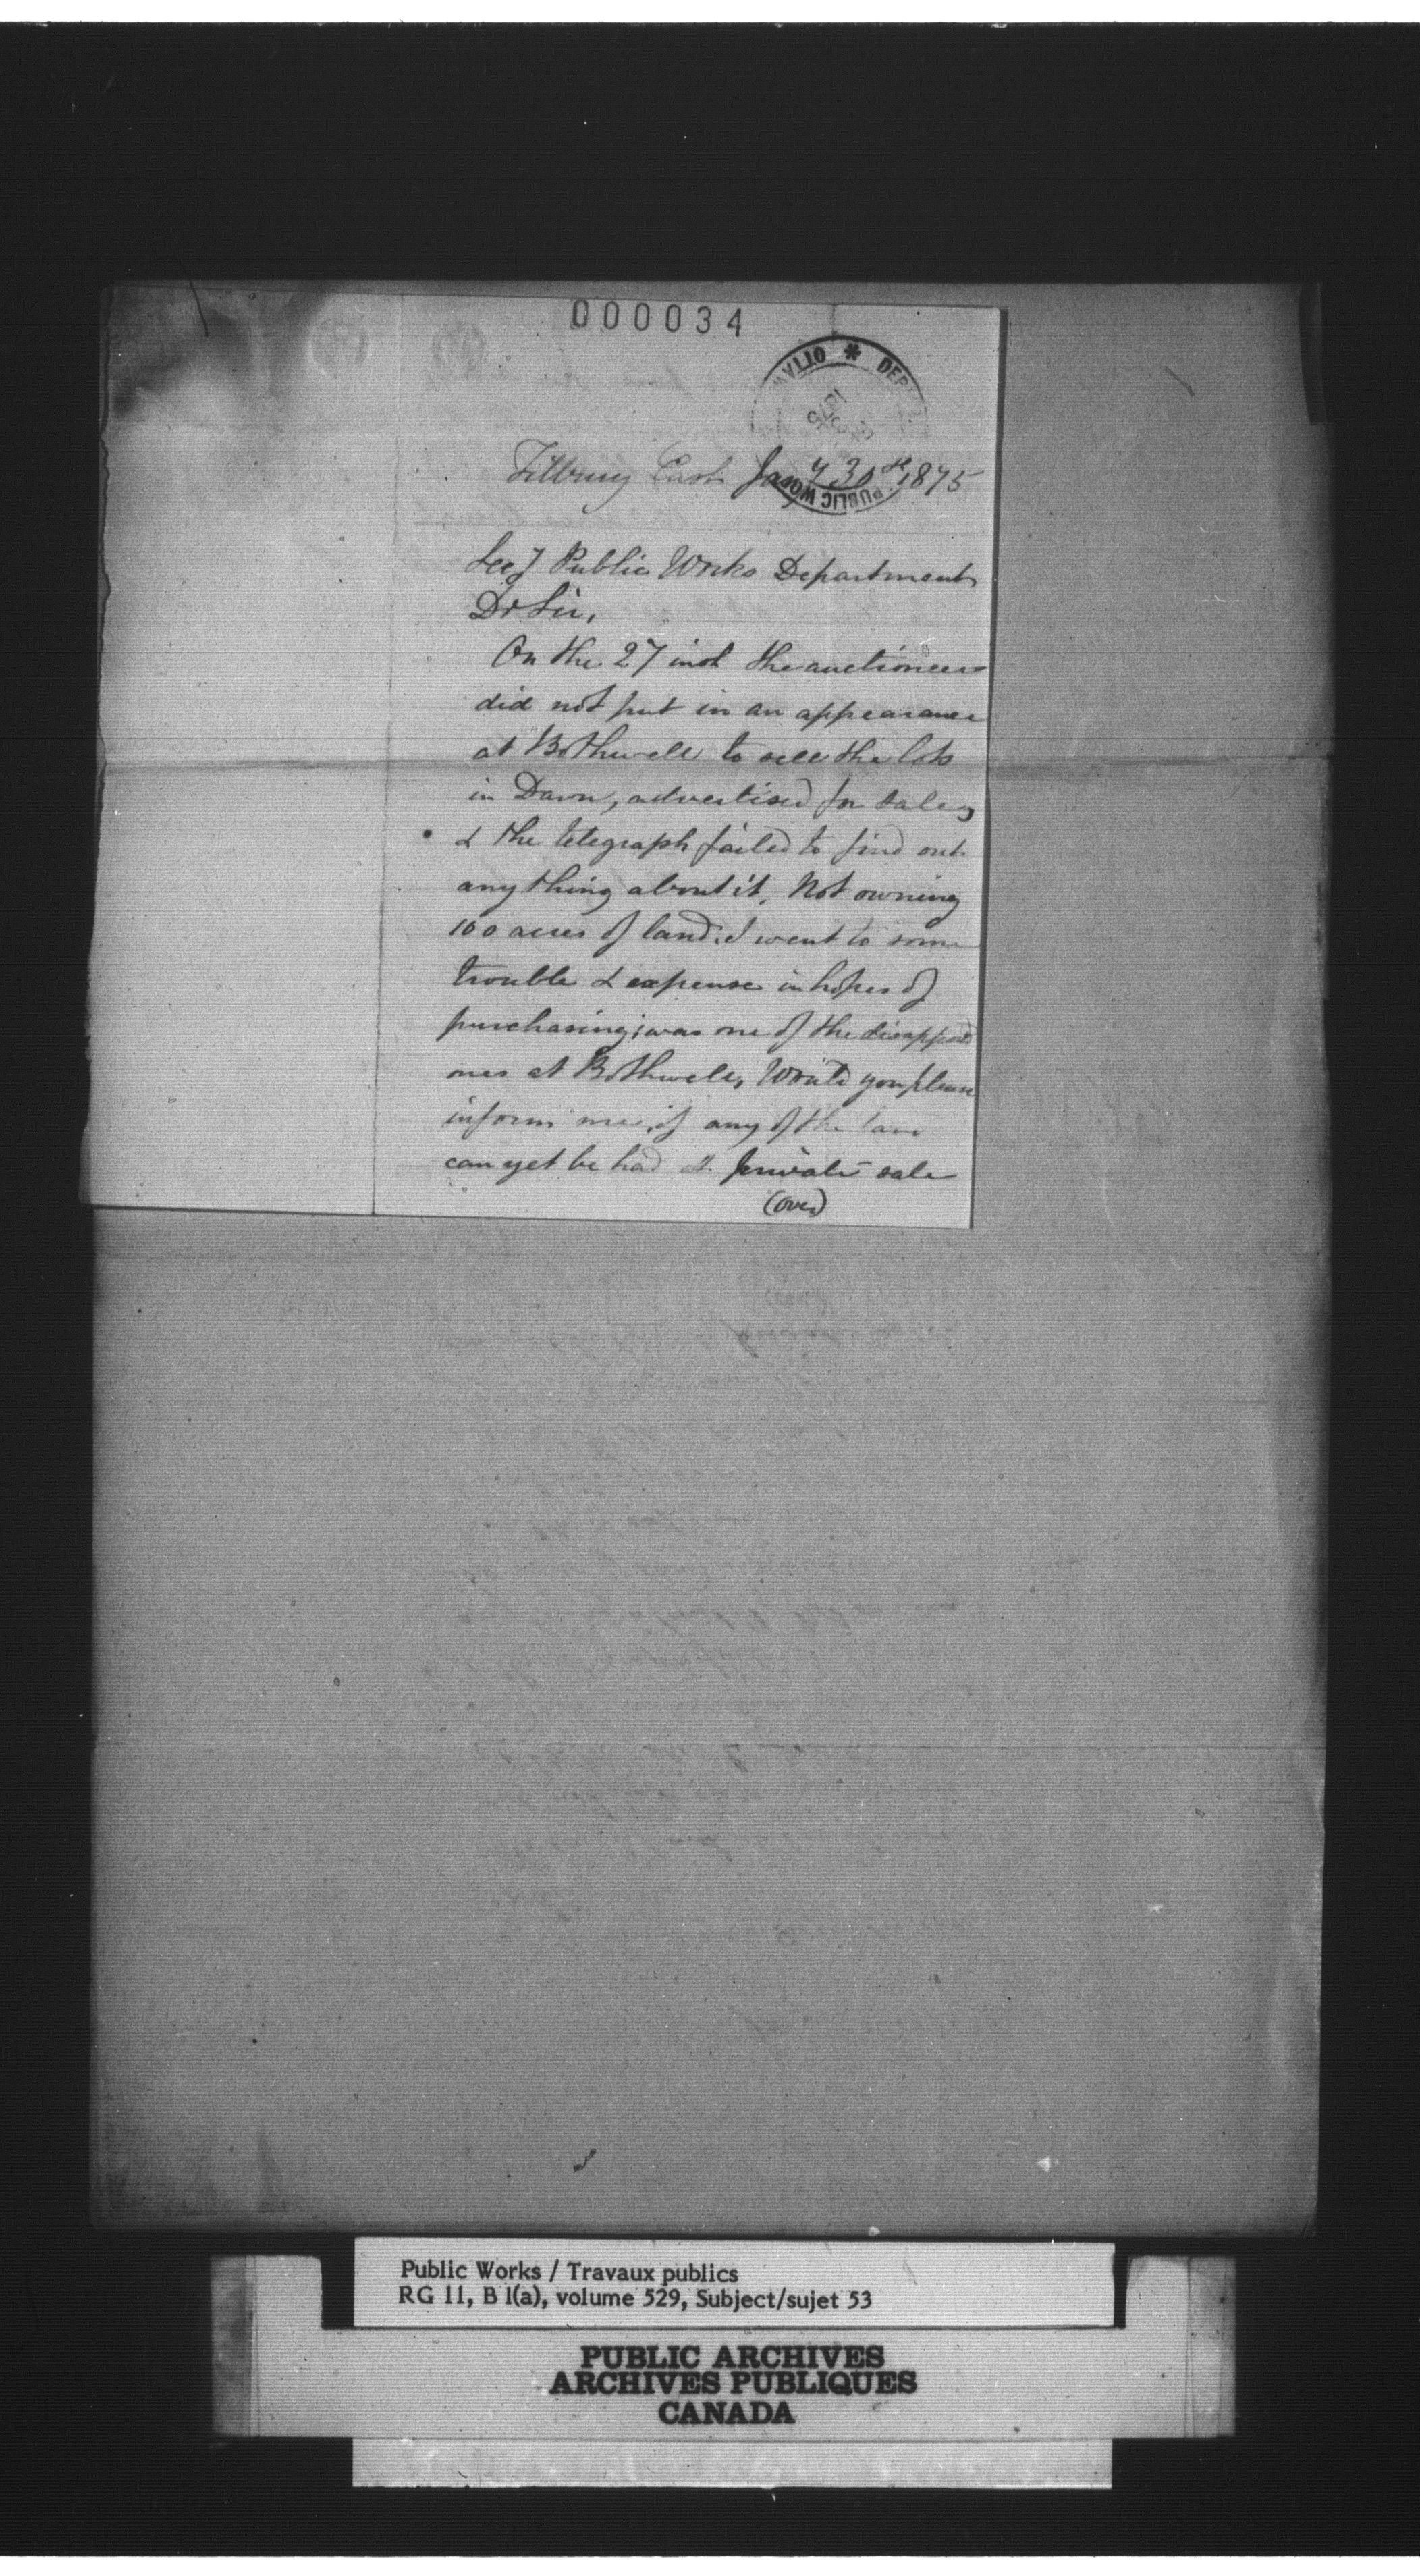 000034
OTTAW * DEP
1875
PUBLIC WO
Tilbury East Jany 30th 1875
Secy Public Works Department
Dr Sir,
On the 27 inst the auctioneer
did not put in an appearance
at Bothwell to sell the lots
in Dawn, advertised for sale,
& the telegraph failed to find out
any thing about it. Not owning
100 acres of land. I went to some
trouble & expense in hopes of
purchasing; was one of the disappntd
ones at Bothwell, Would you please
inform me, if any of the land
can yet be had at private sale
(over)
Public Works / Travaux publics
RG 11, B 1(a), volume 529, Subject/sujet 53
PUBLIC ARCHIVES
ARCHIVES PUBLIQUES
CANADA